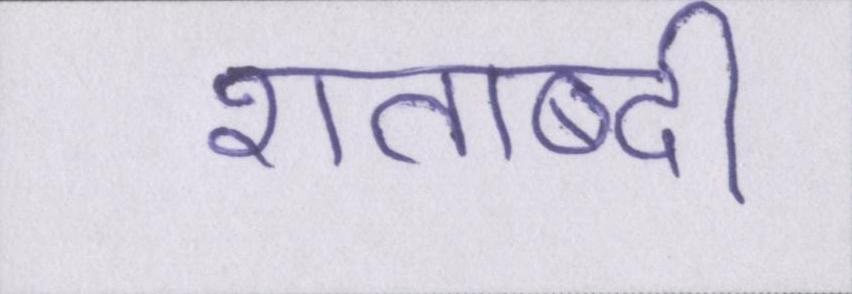 शताब्दी